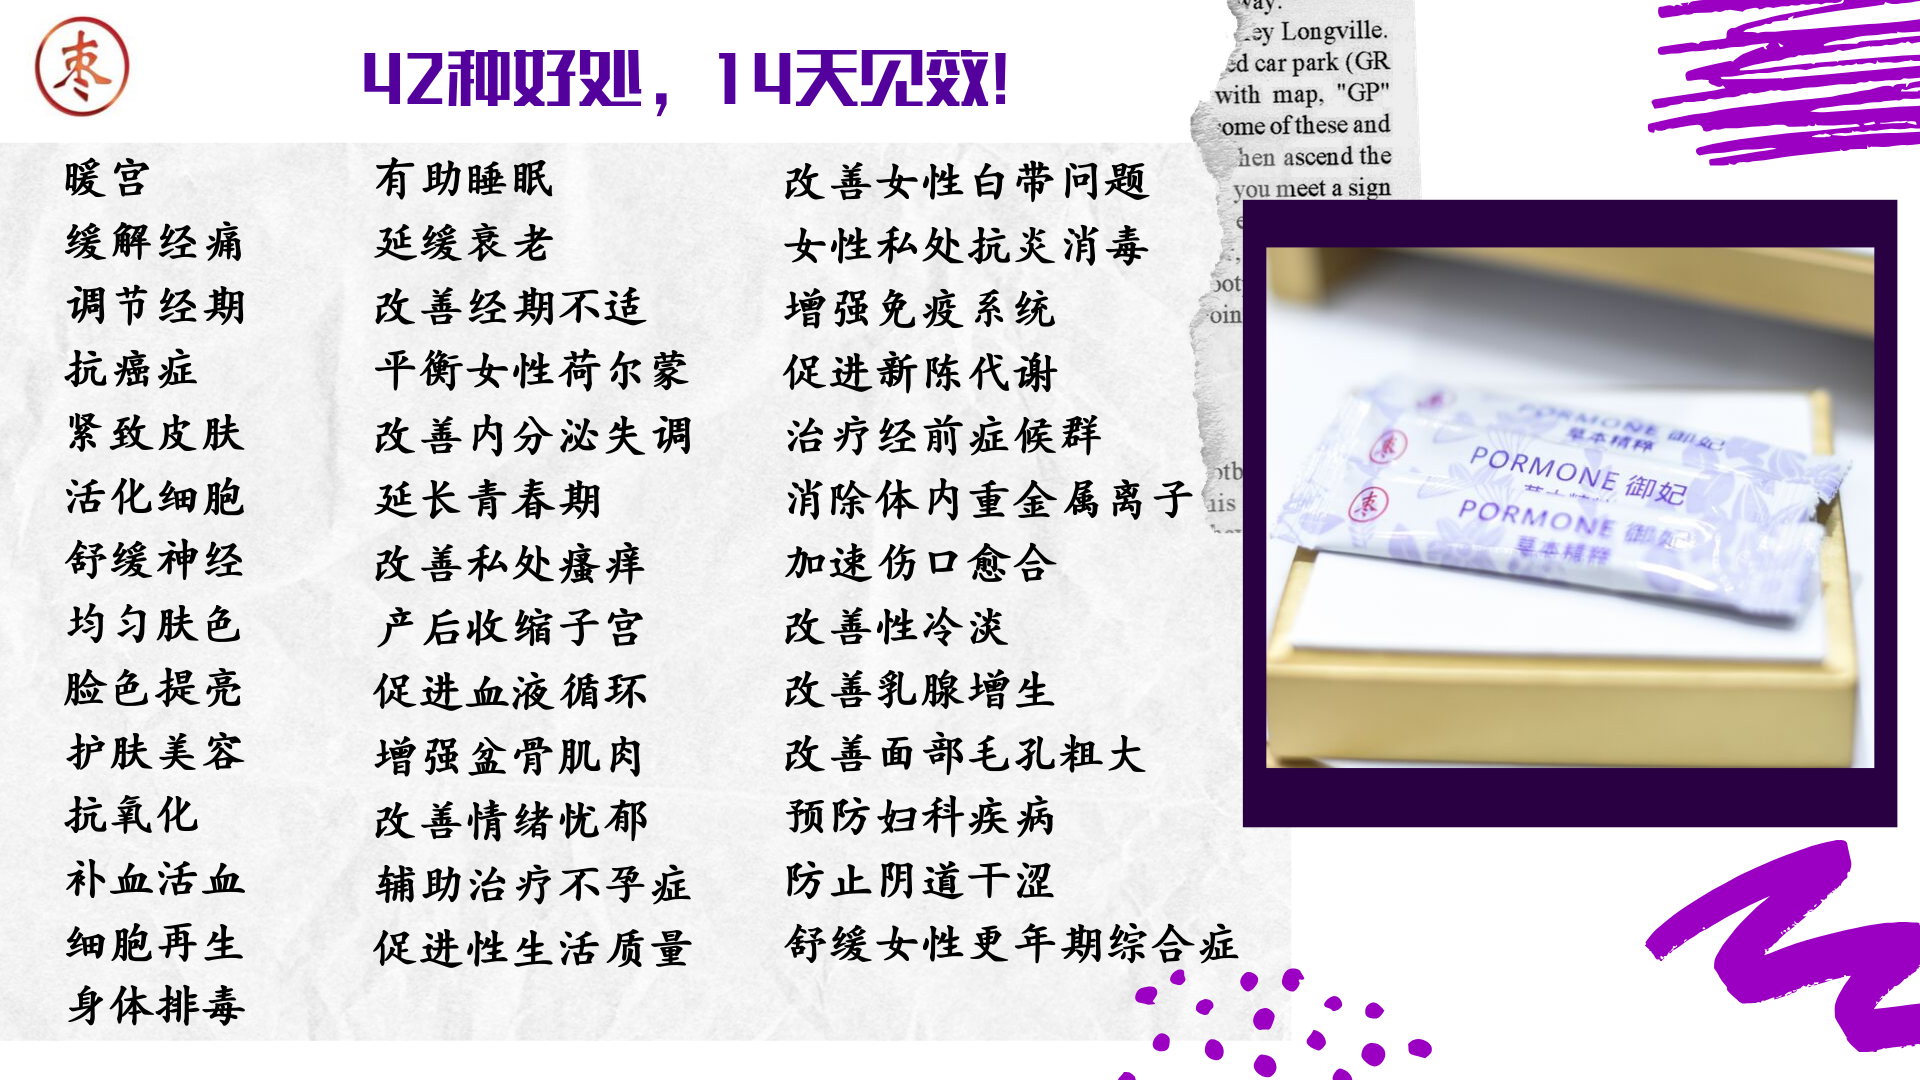 枣
42种好处，14天见效!
暖宫
缓解经痛
调节经期
抗癌症
紧致皮肤
活化细胞
舒缓神经
均匀肤色
脸色提亮
护肤美容
抗氧化
补血活血
细胞再生
身体排毒
有助睡眠
延缓衰老
改善经期不适
平衡女性荷尔蒙
改善内分泌失调
延长青春期
改善私处瘙痒
产后收缩子宫
促进血液循环
增强盆骨肌肉
改善情绪忧郁
辅助治疗不孕症
促进性生活质量
改善女性白带问题
女性私处抗炎消毒
增强免疫系统
促进新陈代谢
治疗经前症候群
消除体内重金属离子
加速伤口愈合
改善性冷淡
改善乳腺增生
改善面部毛孔粗大
预防妇科疾病
防止阴道干涩
舒缓女性更年期综合症
way.
ey Longville.
ed car park (GR
with map, "GP"
ome of these and
hen ascend the
you meet a sign
PORMONE 御妃
草本精粹
枣
PORMONE 御妃
枣
PORMONE 御妃
草本精粹